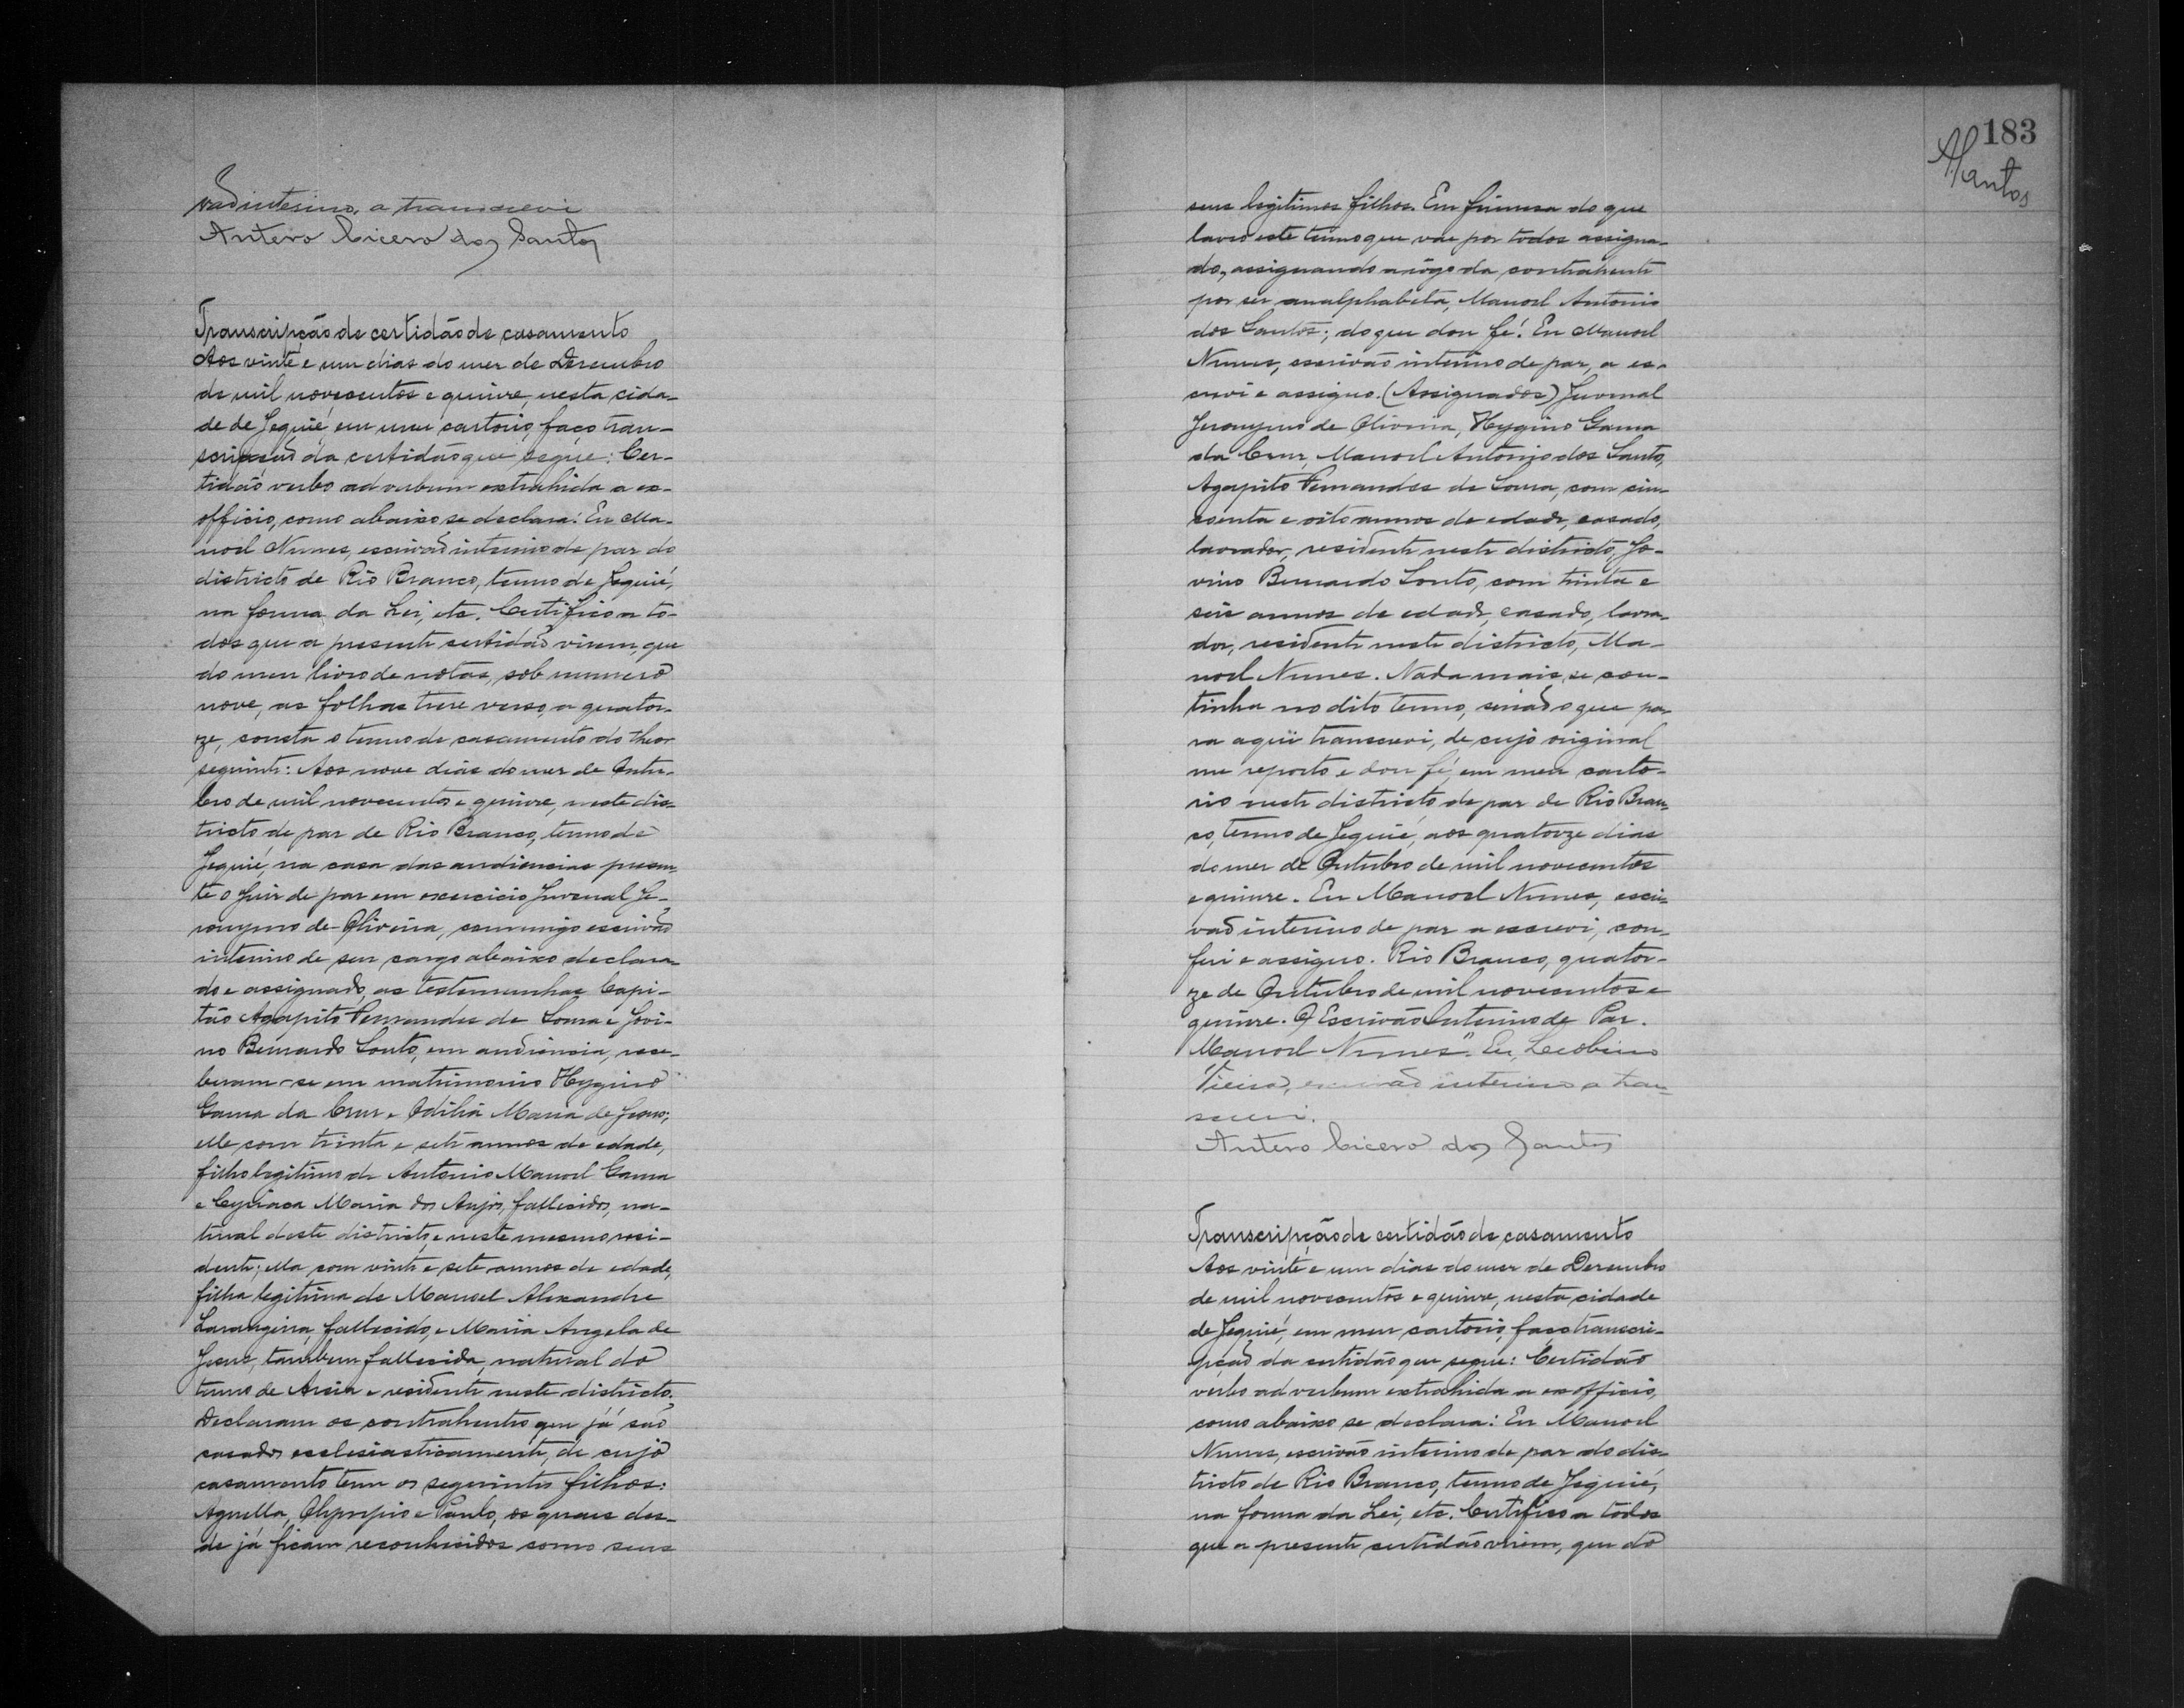 vão interino, a transcrevi
Antero Cicero dos Santos
Transcripção de certidão de casamento
Aos vinte e um dias do mez de Dezembro
de mil novecentos e quinze, nesta cida-
de de Jequié, em meu cartorio, faço tran-
scripção da certidão que segue: Cer-
tidão verbo ad verbum extrahida a ex-
officio, como abaixo se declara: Eu Ma-
noel Nunes, escrivão interino de paz do
districto de Rio Branco, termo de Jequié,
na forma da Lei, etc. Certifico a to-
dos que a presente certidão virem, que
do meu livro de notas, sob numero
nove, as folhas treze verso, a quator-
ze, consta o termo de casamento do theor
seguinte: Aos nove dias do mez de Outu-
bro de mil novecentos e quinze, neste dis-
tricto de paz de Rio Branco, termo de
Jequié, na casa das audiencias presen-
te o Juiz de paz em excercicio Juvenal Je-
ronymo de Oliveira, commigo escrivão
interino de seu cargo abaixo declara-
do e assignado, as testemunhas Capi-
tão Agapito Fernandes de Souza e Jovi-
no Bernardo Souto, em audiencia, rece-
beram-se em matrimonio Hygino
Gama da Cruz e Odilia Maria de Jesus;
elle com trinta e sete annos de edade,
filho legitimo de Antonio Manoel Gama
e Cyriaca Maria dos Anjos, fallecidos, na-
tural deste districto, e neste mesmo resi-
dente; ella com vinte e sete annos de edade,
filha legitima de Manoel Alexandre
Larangeira, fallecido, e Maria Angela de
Jesus, tambem fallecida, natural do
termo de Areia e residente neste districto.
Declaram os contrahentes que já são
casados ecclesiasticamente, de cujo
casamento tem os seguintes filhos:
Agnella, Olympio e Paulo, os quaes des-
de já ficam reconhecidos como seus
183
ASantos
seus legitimos filhos. Em firmeza do que
lavro este termo que vae por todos assigna-
do, assignando a rógo da contrahente
por ser analphabeta, Manoel Antonio
dos Santos; do que dou fé. Eu Manoel
Nunes, escrivão interino de paz, a es-
crevi e assigno. (Assignados) Juvenal
Jeronymo de Oliveira, Hygino Gama
da Cruz, Manoel Antonio dos Santos,
Agapito Fernandes de Souza, com cin-
coenta e oito annos de edade, casado,
lavrador, residente neste districto, Jo-
vino Bernardo Souto, com trinta e
seis annos de edade, casado, lavra-
dor, residente neste districto, Ma-
noel Nunes. Nada mais se con-
tinha no dito termo, senão o que pa-
ra aqui transcrevi, de cujo original
me reporto e dou fé, em meu carto-
rio neste districto de paz de Rio Bran-
co, termo de Jequié, aos quatorze dias
do mez de Outubro de mil novecentos
e quinze. Eu Manoel Nunes, escri-
vão interino de paz a escrevi, con-
feri e assigno. Rio Branco, quator-
ze de Outubro de mil novecentos e
quinze. O Escrivão Interino de Paz.
Manoel Nunes". Eu,
Vieira, escrivão interino a tran-
screvi.
Antero Cicero dos Santos
Transcripção de certidão de casamento
Aos vinte e um dias do mez de Dezembro
de mil novecentos e quinze, nesta cidade
de Jequié, em meu cartorio, faço transcri-
pção da certidão que segue: Certidão
verbo ad verbum extrahida a ex officio,
como abaixo se declara: Eu Manoel
Nunes, escrivão interino de paz do dis-
tricto de Rio Branco, termo de Jequié,
na forma da Lei, etc. Certifico a todos
que a presente certidão virem, que do